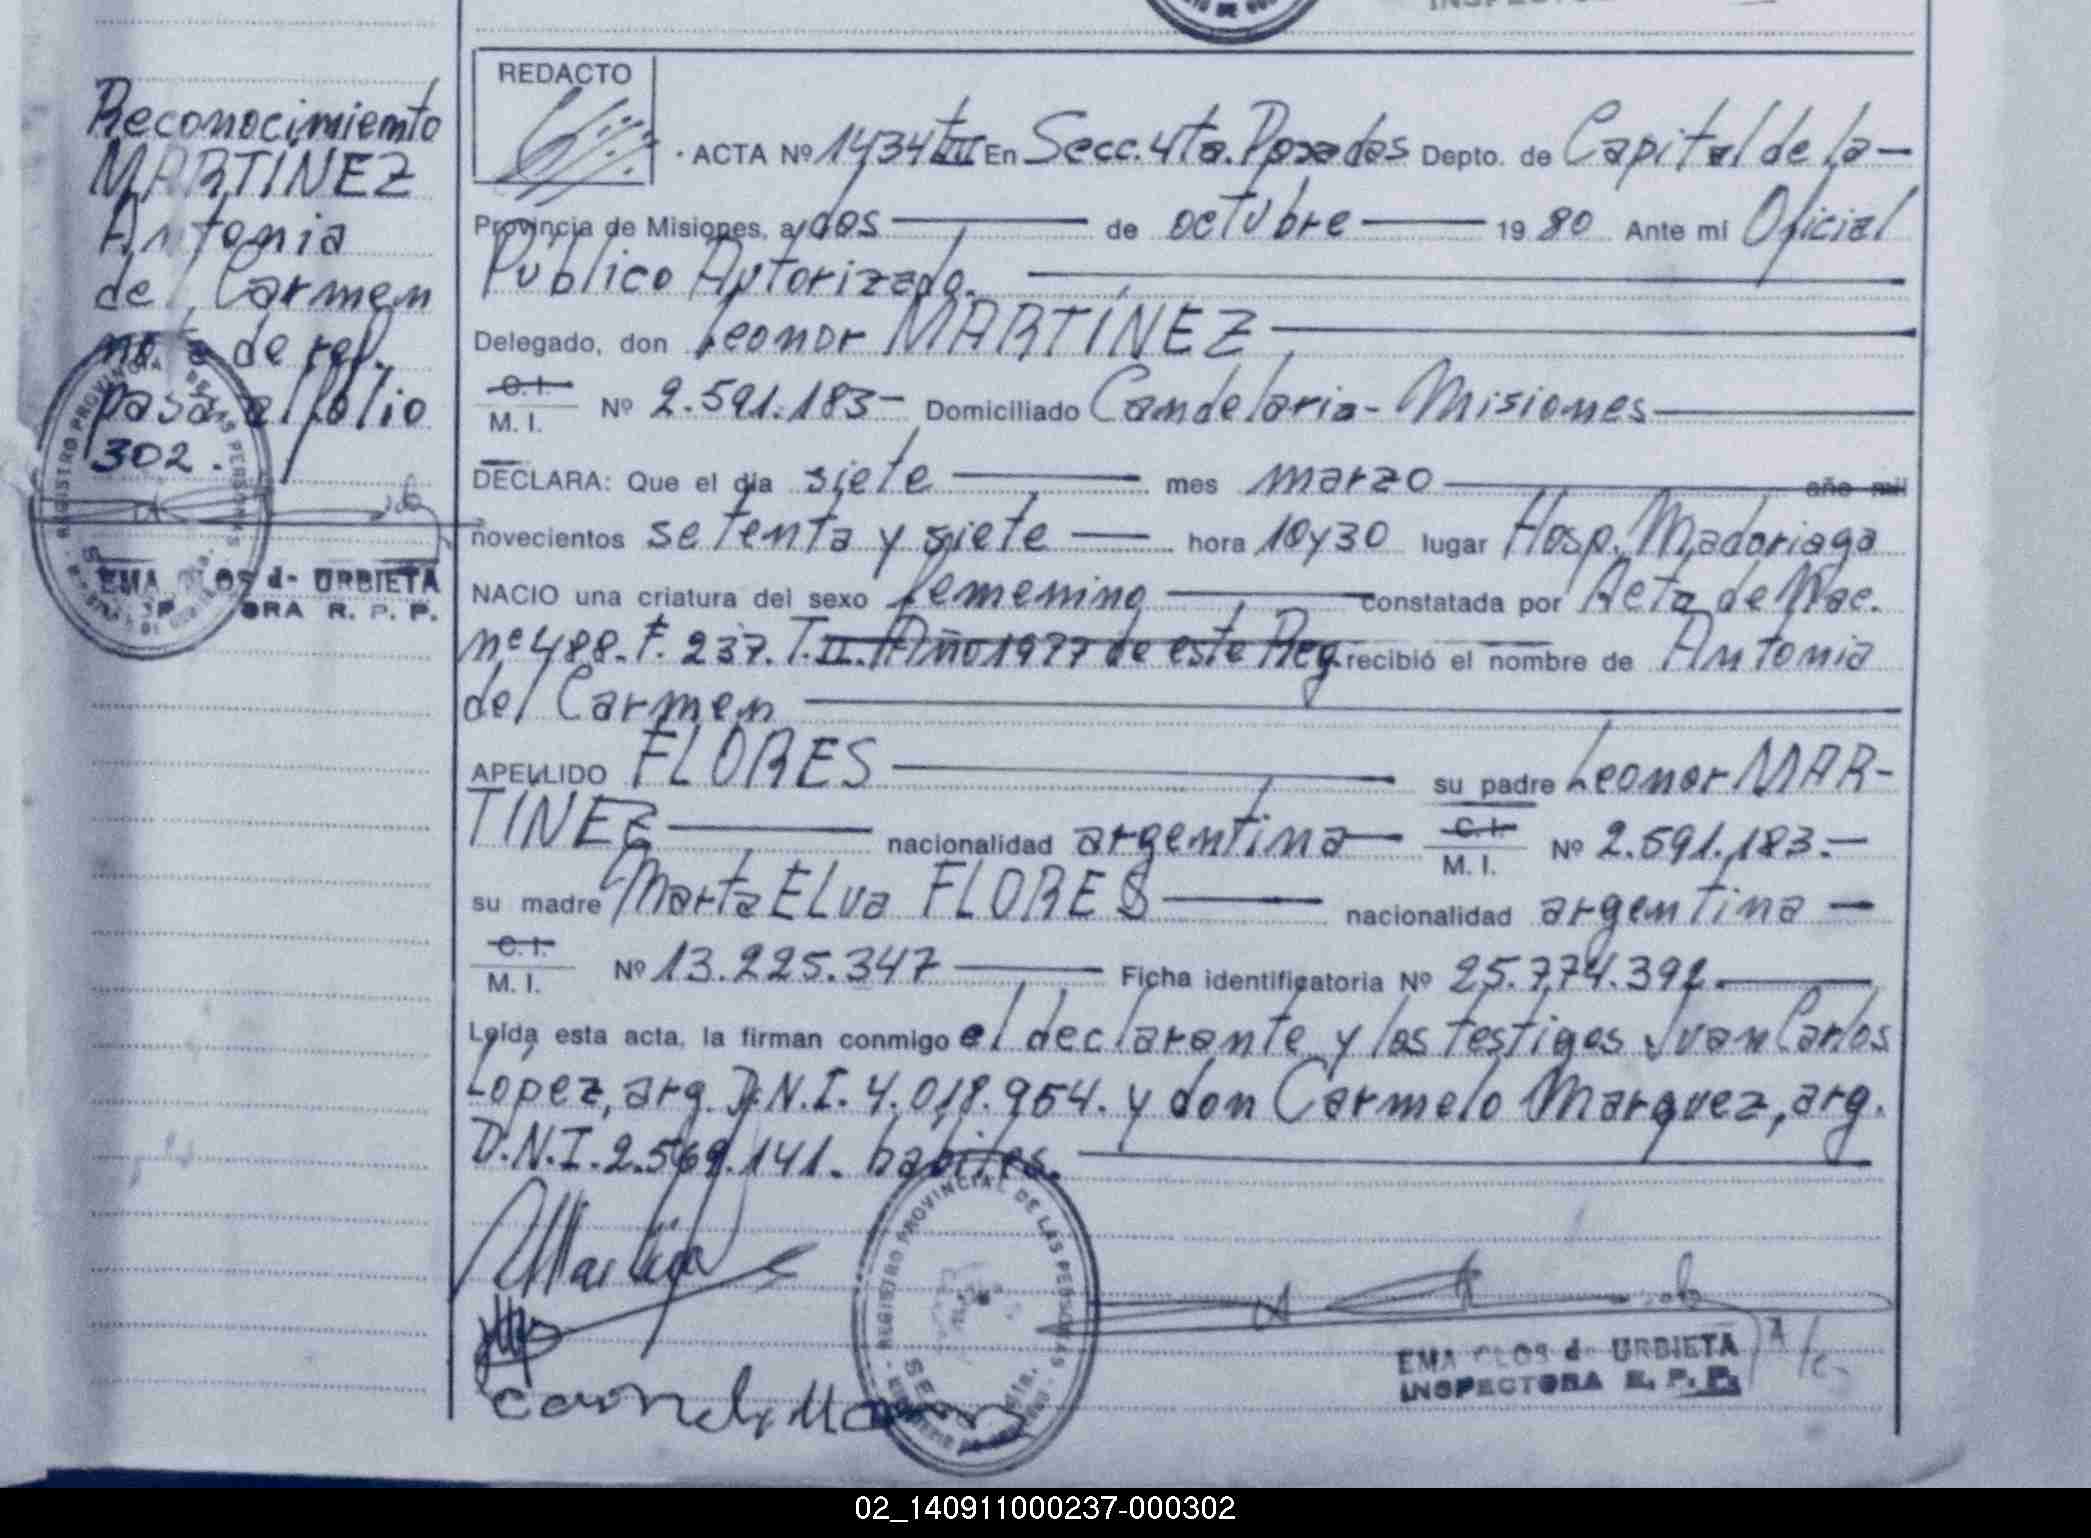 Reconocimiento
MARTÍNEZ
Antonia
del Carmen
de ref.
pasa al folio
302.
EMA CLOS d- URBIETA
ORA R. P. P.
REDACTO
ACTA Nº 1434 TIII En Secc. 4ta. Posadas Depto. de Capital de la-
Provincia de Misiones, a dos de octubre 1980 Ante mi Oficial
Público Autorizado.
Delegado, don Leonor MARTÍNEZ
C. I.
M. I. Nº 2.591.183- Domiciliado Candelaria- Misiones
DECLARA: Que el día siete mes marzo año mil
novecientos setenta y siete hora 10y30 lugar Hosp. Madariaga
NACIO una criatura del sexo femenino constatada por Acta de Nac.
nº 488. F. 237. T. II. Año 1977 de este Reg. recibió el nombre de Antonia
del Carmen
APELLIDO FLORES su padre Leonor MAR-
TÍNEZ nacionalidad argentina C. I. M. I. Nº 2.591.183.-
su madre Marta Elva FLORES nacionalidad argentina
C. I.
M. I. Nº 13.225.347 Ficha identificatoria Nº 25.774.392.
Leída esta acta, la firman conmigo el declarante y los testigos Juan Carlos
Lopez, arg. D.N.I. 4.018.954. y don Carmelo Marquez, arg.
D.N.I. 2.569.141. habiles.
REGISTRO PROVINCIAL DE LAS PERSONAS
EMA CLOS d- URBIETA
INSPECTORA R. P. P.
02_140911000237-000302